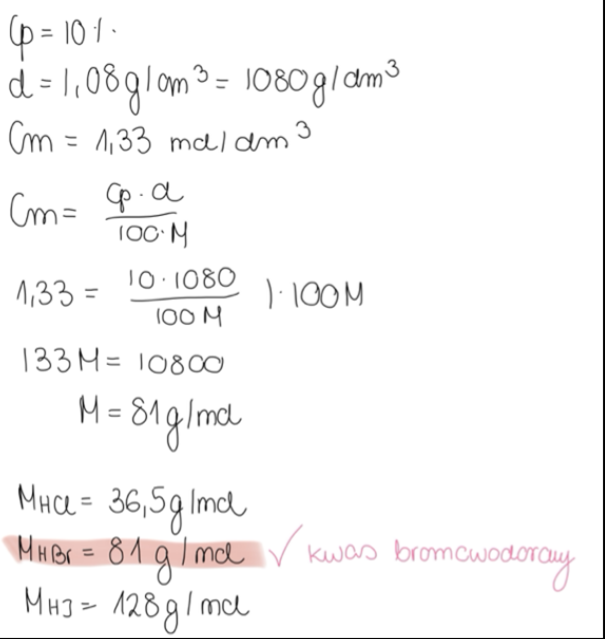 Cp = 10%
d = 1,08g/cm³ = 1080g/dm³
Cm = 1,33 mol/dm³
Cm = Cp · d / 100 · M
1,33 = 10 · 1080 / 100 M | · 100M
133M = 10800
M = 81g/mol
MHCl = 36,5g/mol
MHBr = 81 g/mol ✓ kwas bromowodorowy
MHJ = 128g/mol